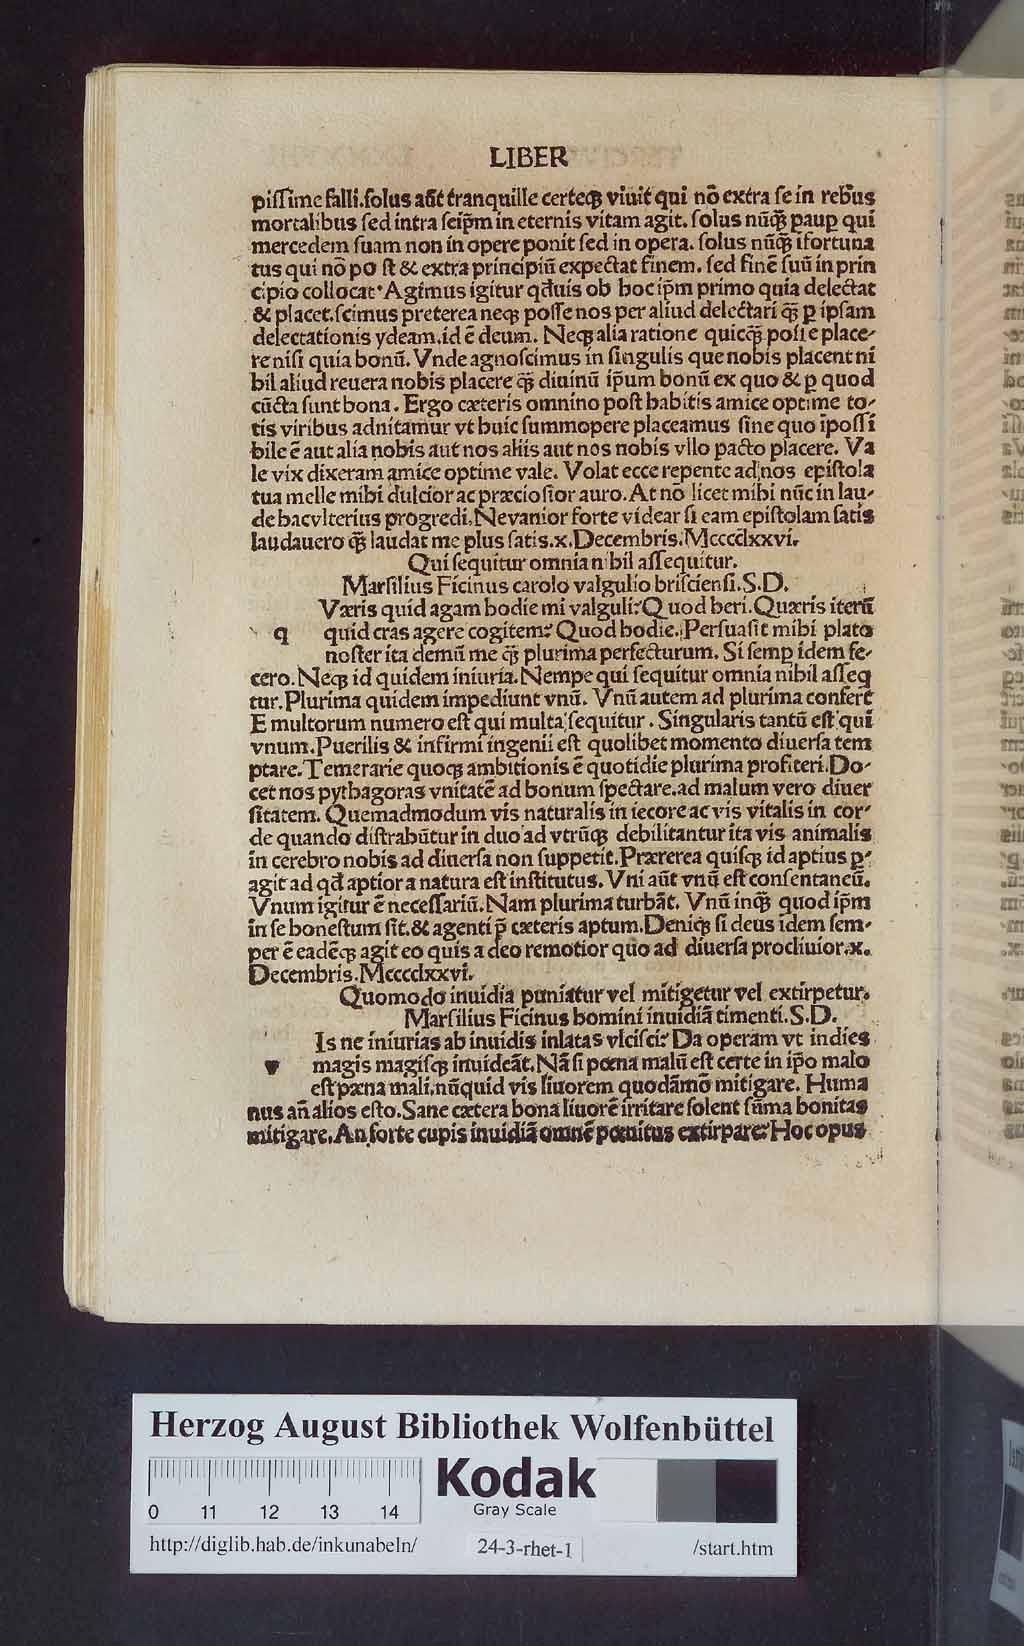 LIBER
pissime falli. solus aūt tranquille certeqꝫ viuit qui nō extra se in rebus
mortalibus sed intra seip̄m in eternis vitam agit. solus nūqꝫ̄ paup̱ qui
mercedem suam non in opere ponit sed in opera. solus nūqꝫ̄ ifortuna
tus qui nō po st & extra principiū expectat finem. sed finē suū in prin
cipio collocat. Agimus igitur qd̄uis ob hoc ip̄m primo quia delectat
& placet. scimus preterea neqꝫ posse nos per aliud delectari qꝫ̄ ꝑ ipsam
delectationis ydeam. id ē deum. Neqꝫ alia ratione quicqꝫ̄ posse place-
re nisi quia bonū. Vnde agnoscimus in singulis que nobis placent ni
hil aliud reuera nobis placere qꝫ̄ diuinū ip̄um bonū ex quo & ꝑ quod
cūcta sunt bona. Ergo cæteris omnino post habitis amice optime to-
tis viribus adnitamur vt huic summopere placeamus sine quo īpossi
bile ē aut alia nobis aut nos aliis aut nos nobis vllo pacto placere. Va
le vix dixeram amice optime vale. Volat ecce repente ad nos epistola
tua melle mihi dulcior ac præciosior auro. At nō licet mihi nūc in lau-
de hac vlterius progredi. Ne vanior forte videar si eam epistolam satis
laudauero qꝫ̄ laudat me plus satis. x. Decembris. Mccccclxxvi.
Qui sequitur omnia nihil assequitur.
Marsilius Ficinus carolo valgulio brisciensi. S. D.
Væris quid agam hodie mi valguli? Quod heri. Quæris iterū
q quid cras agere cogitem? Quod hodie. Persuasit mihi plato
noster ita demū me qꝫ̄ plurima perfecturum. Si semp̱ idem fe-
cero. Neqꝫ id quidem iniuria. Nempe qui sequitur omnia nihil asseq
tur. Plurima quidem impediunt vnū. Vnū autem ad plurima confert
E multorum numero est qui multa sequitur. Singularis tantū est qui
vnum. Puerilis & infirmi ingenii est quolibet momento diuersa tem
ptare. Temerarie quoqꝫ ambitionis ē quotidie plurima profiteri. Do-
cet nos pythagoras vnitatē ad bonum spectare. ad malum vero diuer
sitatem. Quemadmodum vis naturalis in iecore ac vis vitalis in cor-
de quando distrahūtur in duo ad vtrūqꝫ debilitantur ita vis animalis
in cerebro nobis ad diuersa non suppetit. Prærerea quisqꝫ id aptius ꝑ-
agit ad qd̄ aptior a natura est institutus. Vni aūt vnū est consentaneū.
Vnum igitur ē necessariū. Nam plurima turbāt. Vnū inqꝫ̄ quod ip̄m
in se honestum sit. & agenti p̄ cæteris aptum. Deniqꝫ si deus idem sem-
per ē eadēqꝫ agit eo quis a deo remotior quo ad diuersa procliuior. x.
Decembris. Mccccclxxvi.
Quomodo inuidia puniatur vel mitigetur vel extirpetur.
Marsilius Ficinus homini inuidiā timenti. S. D.
Is ne iniurias ab inuidis inlatas vlcisci? Da operam vt indies
v magis magisqꝫ inuideāt. Nā si pœna malū est certe in ip̄o malo
est pæna mali. nūquid vis liuorem quodāmō mitigare. Huma
nus añ alios esto. Sane cætera bona liuorē irritare solent sūma bonitas
mitigare. An forte cupis inuidiā omnē pœnitus extirpare? Hoc opus
Herzog August Bibliothek Wolfenbüttel
0 11 12 13 14
Kodak
Gray Scale
http://diglib.hab.de/inkunabeln/ 24-3-rhet-1 /start.htm